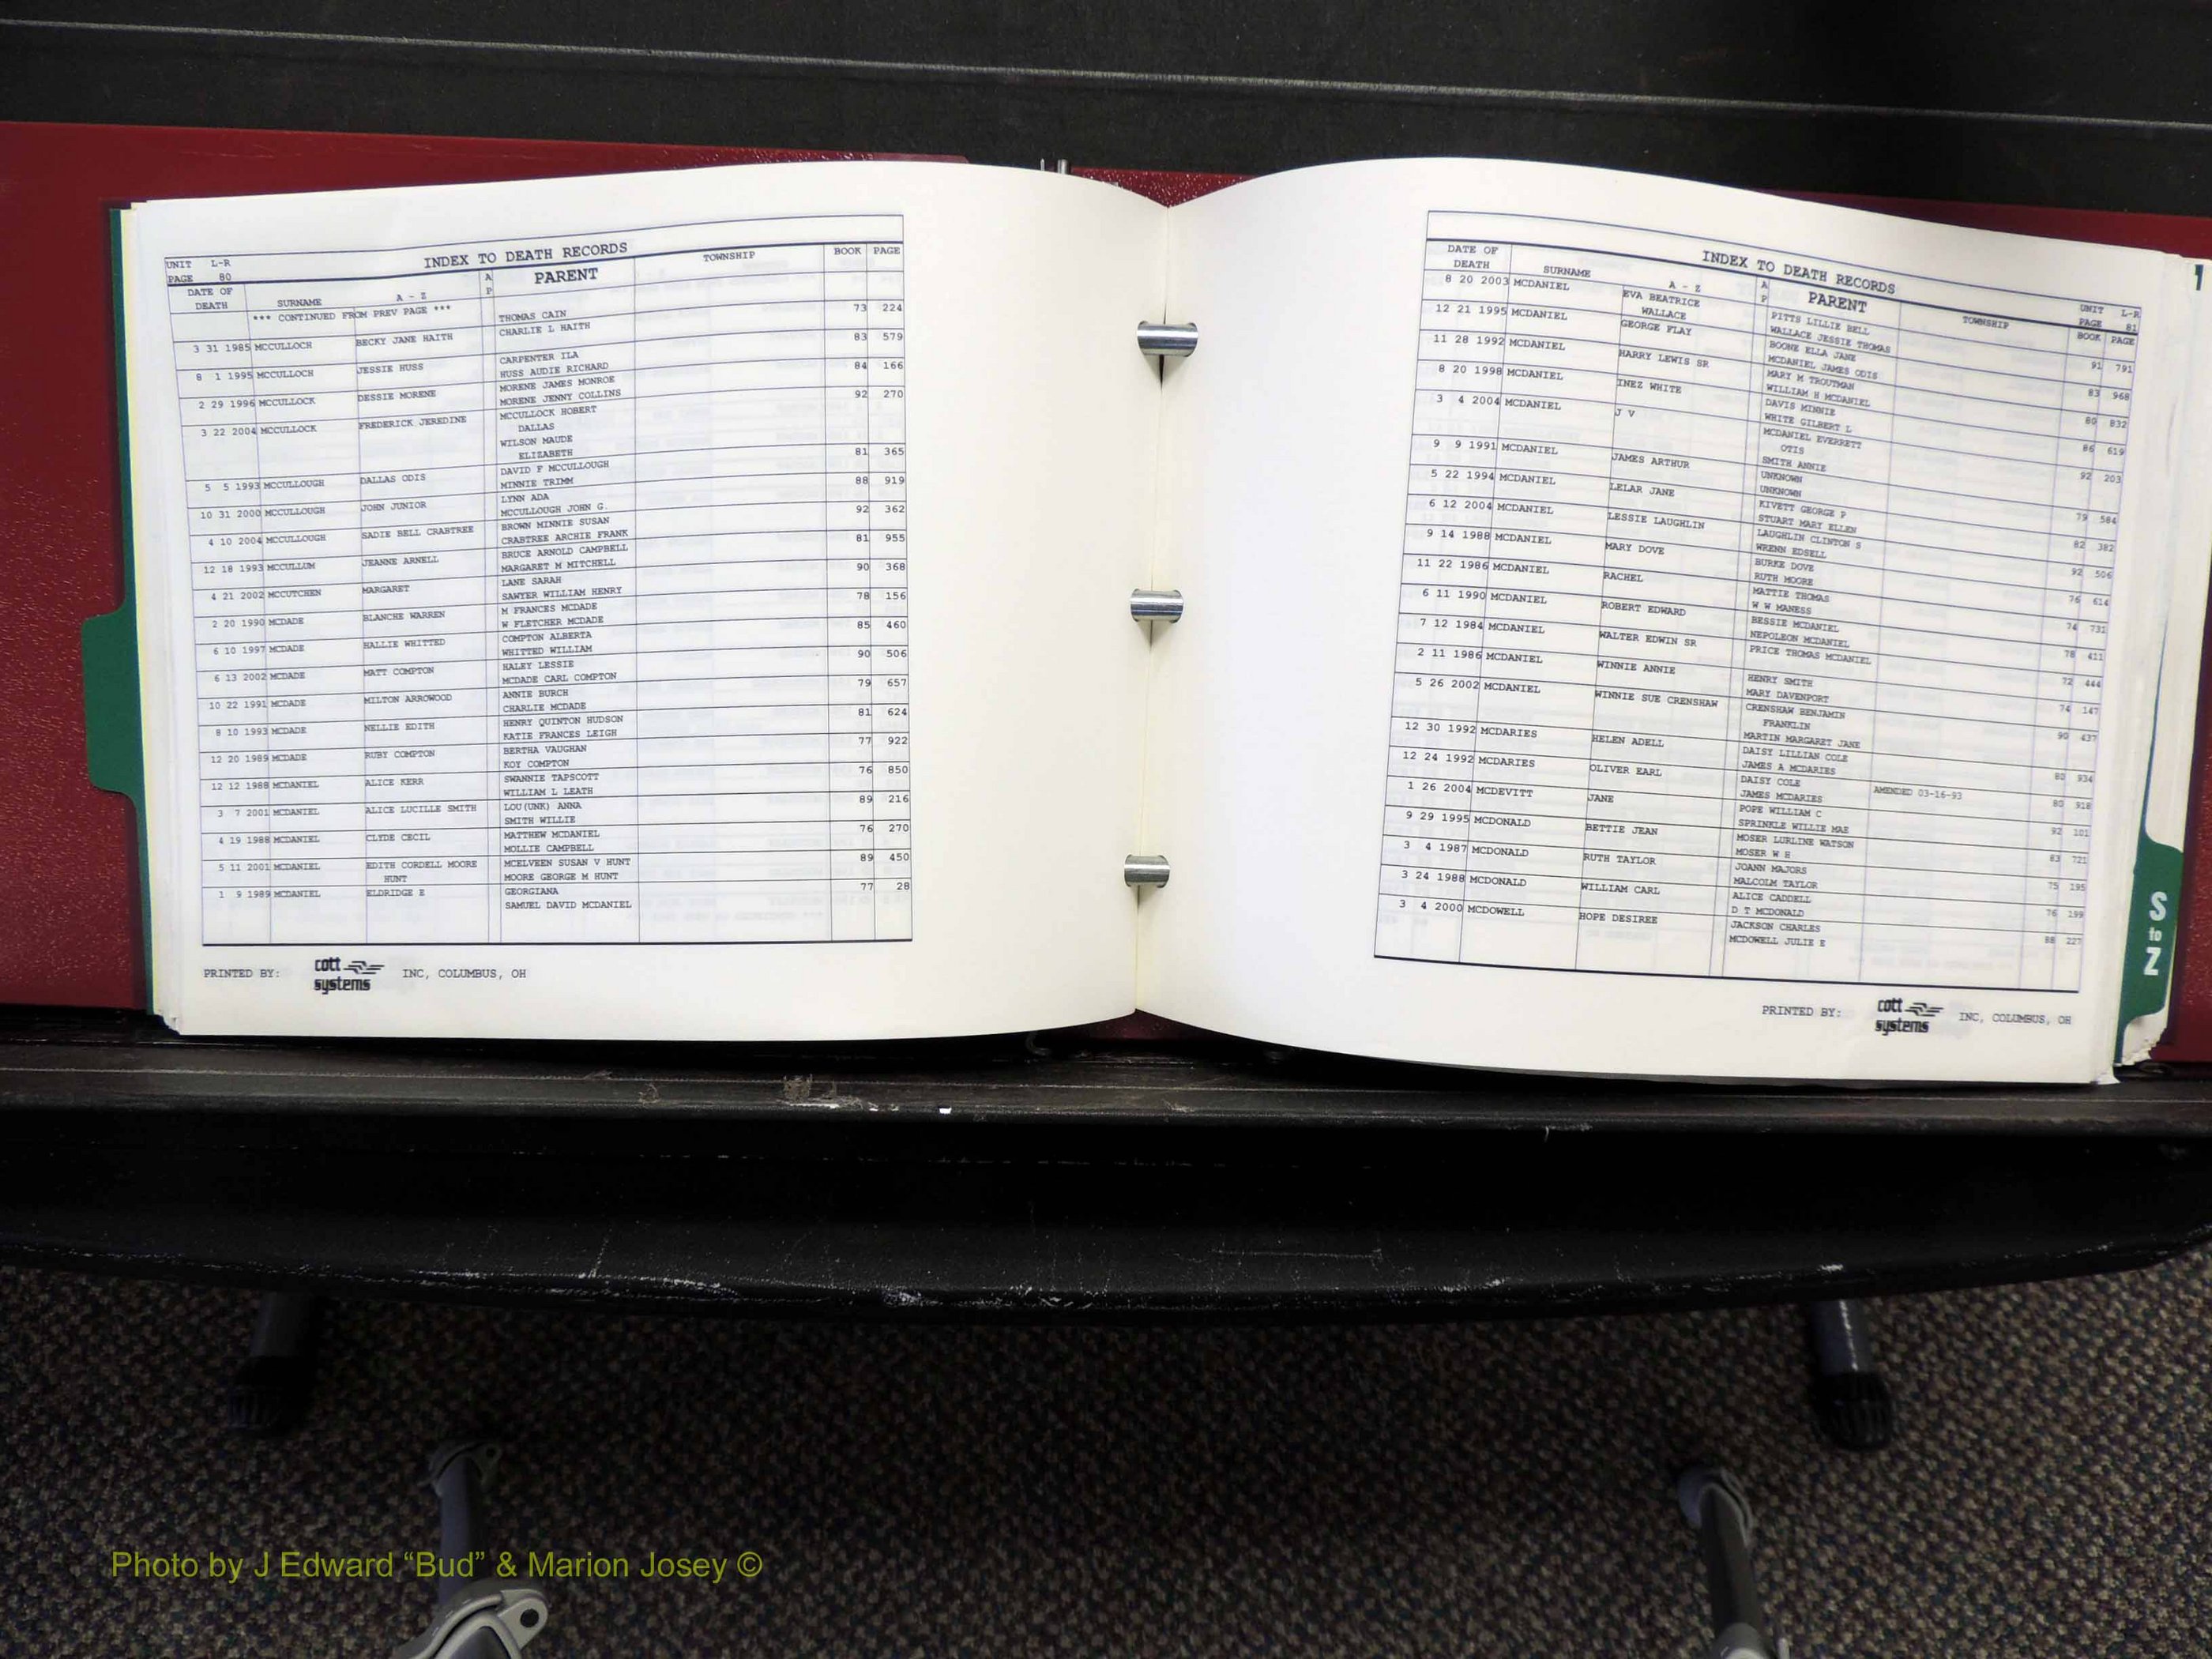 UNIT L-R INDEX TO DEATH RECORDS
PAGE 80
DATE OF DEATH SURNAME A - Z A P PARENT TOWNSHIP BOOK PAGE
*** CONTINUED FROM PREV PAGE *** THOMAS CAIN
3 31 1985 MCCULLOCH BECKY JANE HAITH CHARLIE L HAITH 73 224
8 1 1995 MCCULLOCH JESSIE HUSS CARPENTER ILA 83 579
HUSS AUDIE RICHARD
2 29 1996 MCCULLOCK DESSIE MORENE MORENE JAMES MONROE 84 166
MORENE JENNY COLLINS
3 22 2004 MCCULLOCK FREDERICK JEREDINE MCCULLOCK HOBERT 92 270
DALLAS
WILSON MAUDE
ELIZABETH
5 5 1993 MCCULLOUGH DALLAS ODIS DAVID F MCCULLOUGH 81 365
MINNIE TRIMM
10 31 2000 MCCULLOUGH JOHN JUNIOR LYNN ADA 88 919
MCCULLOUGH JOHN G.
4 10 2004 MCCULLOUGH SADIE BELL CRABTREE BROWN MINNIE SUSAN 92 362
CRABTREE ARCHIE FRANK
12 18 1993 MCCULLUM JEANNE ARNELL BRUCE ARNOLD CAMPBELL 81 955
MARGARET M MITCHELL
4 21 2002 MCCUTCHEN MARGARET LANE SARAH 90 368
SAWYER WILLIAM HENRY
2 20 1990 MCDADE BLANCHE WARREN M FRANCES MCDADE 78 156
W FLETCHER MCDADE
6 10 1997 MCDADE HALLIE WHITTED COMPTON ALBERTA 85 460
WHITTED WILLIAM
6 13 2002 MCDADE MATT COMPTON HALEY LESSIE 90 506
MCDADE CARL COMPTON
10 22 1991 MCDADE MILTON ARROWOOD ANNIE BURCH 79 657
CHARLIE MCDADE
8 10 1993 MCDADE NELLIE EDITH HENRY QUINTON HUDSON 81 624
KATIE FRANCES LEIGH
12 20 1989 MCDADE RUBY COMPTON BERTHA VAUGHAN 77 922
KOY COMPTON
12 12 1988 MCDANIEL ALICE KERR SWANNIE TAPSCOTT 76 850
WILLIAM L LEATH
3 7 2001 MCDANIEL ALICE LUCILLE SMITH LOU(UNK) ANNA 89 216
SMITH WILLIE
4 19 1988 MCDANIEL CLYDE CECIL MATTHEW MCDANIEL 76 270
MOLLIE CAMPBELL
5 11 2001 MCDANIEL EDITH CORDELL MOORE MCELVEEN SUSAN V HUNT 89 450
HUNT MOORE GEORGE M HUNT
1 9 1989 MCDANIEL ELDRIDGE E GEORGIANA 77 28
SAMUEL DAVID MCDANIEL
PRINTED BY: cott systems INC, COLUMBUS, OH
INDEX TO DEATH RECORDS UNIT L-R
PAGE 81
DATE OF DEATH SURNAME A - Z A P PARENT TOWNSHIP BOOK PAGE
8 20 2003 MCDANIEL EVA BEATRICE PITTS LILLIE BELL 91 791
WALLACE WALLACE JESSIE THOMAS
12 21 1995 MCDANIEL GEORGE FLAY BOONE ELLA JANE 83 968
MCDANIEL JAMES ODIS
11 28 1992 MCDANIEL HARRY LEWIS SR MARY M TROUTMAN 80 832
WILLIAM H MCDANIEL
8 20 1998 MCDANIEL INEZ WHITE DAVIS MINNIE 86 619
WHITE GILBERT L
3 4 2004 MCDANIEL J V MCDANIEL EVERRETT 92 203
OTIS
SMITH ANNIE
9 9 1991 MCDANIEL JAMES ARTHUR UNKNOWN 79 584
UNKNOWN
5 22 1994 MCDANIEL LELAR JANE KIVETT GEORGE P 82 382
STUART MARY ELLEN
6 12 2004 MCDANIEL LESSIE LAUGHLIN LAUGHLIN CLINTON S 92 506
WRENN EDSELL
9 14 1988 MCDANIEL MARY DOVE BURKE DOVE 76 614
RUTH MOORE
11 22 1986 MCDANIEL RACHEL MATTIE THOMAS 74 731
W W MANESS
6 11 1990 MCDANIEL ROBERT EDWARD BESSIE MCDANIEL 78 411
NEPOLEON MCDANIEL
7 12 1984 MCDANIEL WALTER EDWIN SR PRICE THOMAS MCDANIEL 72 444
2 11 1986 MCDANIEL WINNIE ANNIE HENRY SMITH 74 147
MARY DAVENPORT
5 26 2002 MCDANIEL WINNIE SUE CRENSHAW CRENSHAW BENJAMIN 90 437
FRANKLIN
MARTIN MARGARET JANE
12 30 1992 MCDARIES HELEN ADELL DAISY LILLIAN COLE 80 934
JAMES A MCDARIES
12 24 1992 MCDARIES OLIVER EARL DAISY COLE AMENDED 03-16-93 80 918
JAMES MCDARIES
1 26 2004 MCDEVITT JANE POPE WILLIAM C 92 101
SPRINKLE WILLIE MAE
9 29 1995 MCDONALD BETTIE JEAN MOSER LURLINE WATSON 83 721
MOSER W H
3 4 1987 MCDONALD RUTH TAYLOR JOANN MAJORS 75 195
MALCOLM TAYLOR
3 24 1988 MCDONALD WILLIAM CARL ALICE CADDELL 76 199
D T MCDONALD
3 4 2000 MCDOWELL HOPE DESIREE JACKSON CHARLES 88 227
MCDOWELL JULIE E
PRINTED BY: cott systems INC, COLUMBUS, OH
1
S to Z
Photo by J Edward “Bud” & Marion Josey ©